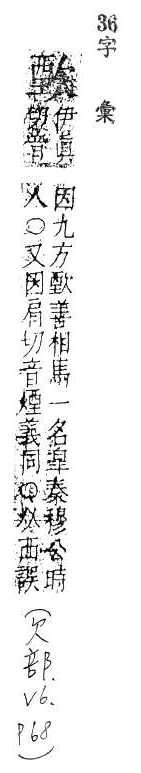 36字彙
伊真
切音
因九方歅善相馬一名臯秦穆公時
人○又因肩切音煙義同○从西誤
(欠部.
V6.
P68)